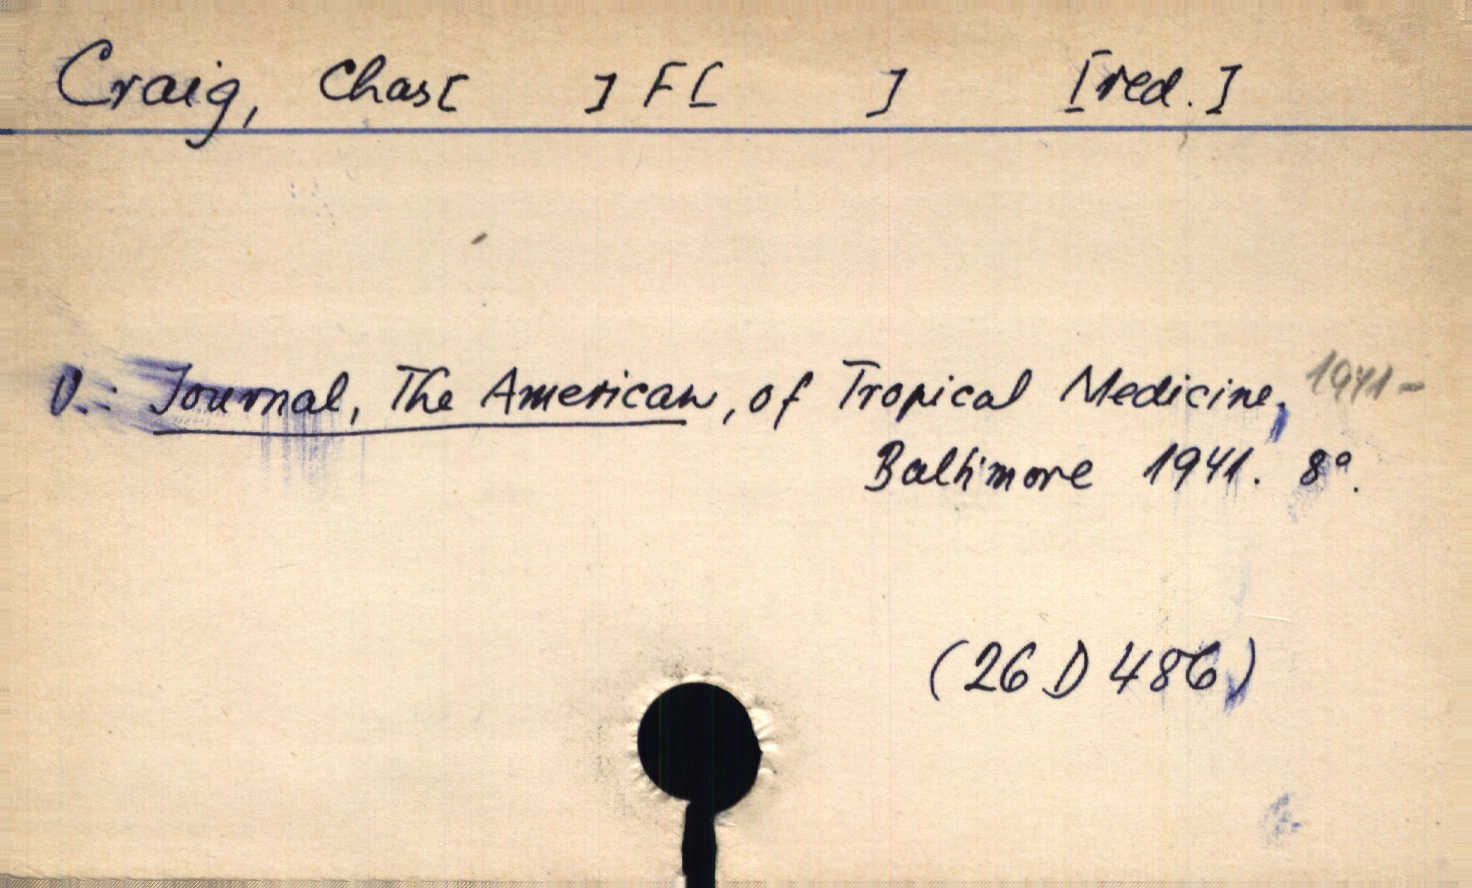 Craig, Chas[ ] F[ ] [red.]
V.: Journal, The American, of Tropical Medicine, 1941-
Baltimore 1941. 8°.
(26 D 486)